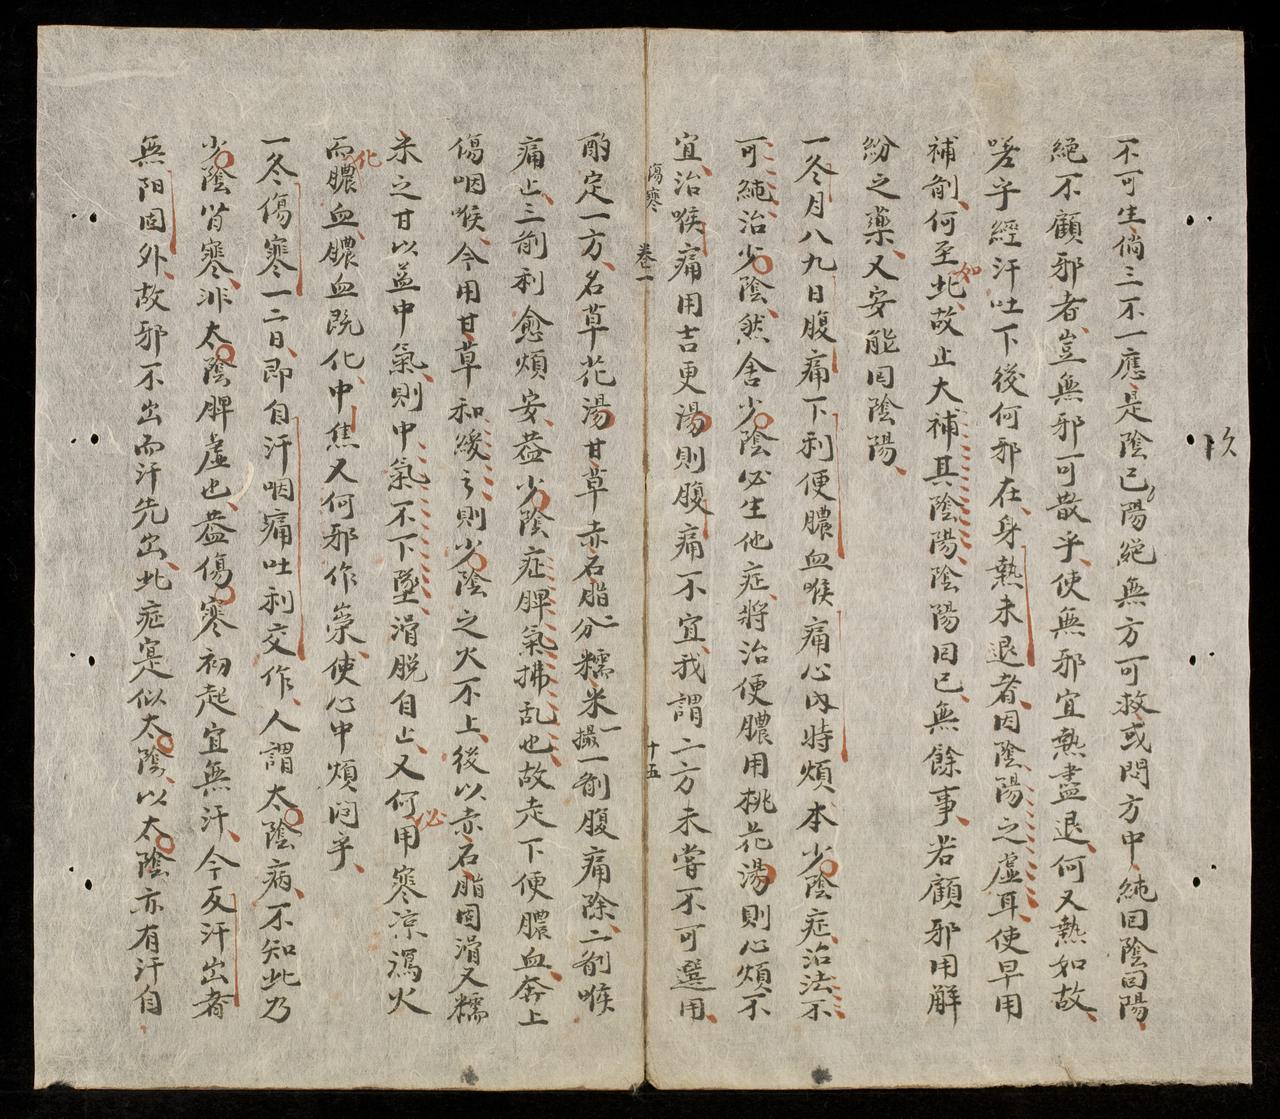 不可生倘三不一應是陰已陽絕無方可救或問方中純回陰回陽
絕不顧邪者豈無邪可散乎使無邪宜熱盡退何又熱如故
嗟乎經汗吐下後何邪在身熱未退者因陰陽之虛耳使早用
補劑何至如此故止大補其陰陽陰陽回已無餘事若顧邪用解
紛之藥又安能回陰陽
一冬月八九日腹痛下利便膿血喉痛心內時煩本少陰症治法不
可純治少陰然舍少陰必生他症將治便膿用桃花湯則心煩不
宜治喉痛用吉更湯則腹痛不宜我謂二方未嘗不可選用
傷寒
卷一
十五
酌定一方名草花湯甘草赤石脂二分糯米一撮一劑腹痛除二劑喉
痛止三劑利愈煩安葢少陰症脾氣拂乱也故走下便膿血奔上
傷咽喉今用甘草和緩之則少陰之火不上後以赤石脂固滑又糯
米之甘以益中氣則中氣不下墜滑脱自止又何必用寒凉瀉火
而化膿血膿血既化中焦又何邪作祟使心中煩悶乎
一冬傷寒一二日即自汗咽痛吐利交作人謂太陰病不知此乃
少陰腎寒非太陰脾虛也葢傷寒初起宜無汗今反汗出者
無阳固外故邪不出而汗先出此症寔似太陰以太陰亦有汗自